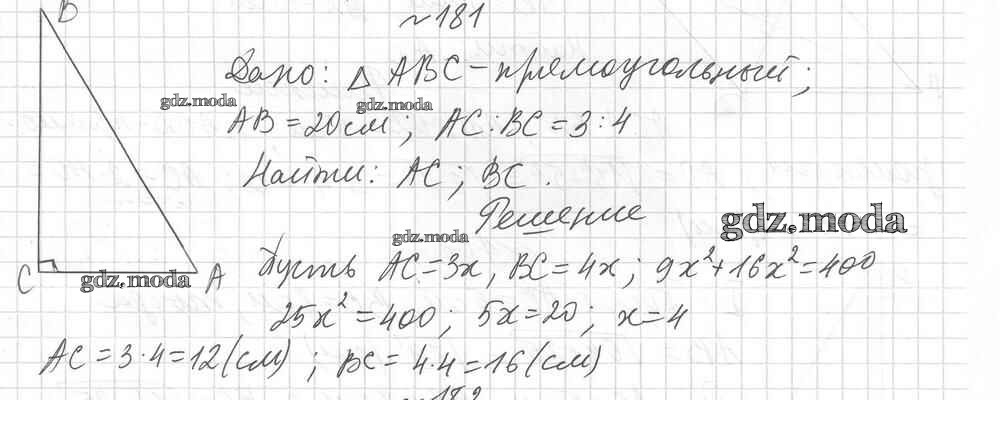 B
№181
Дано: △ ABC - прямоугольный;
gdz.moda gdz.moda
AB = 20 см; AC:BC = 3:4
Найти: AC; BC.
Решение
gdz.moda
gdz.moda
Пусть AC = 3x, BC = 4x; 9x² + 16x² = 400
C gdz.moda A
25x² = 400; 5x = 20; x = 4
AC = 3·4 = 12 (см); BC = 4·4 = 16 (см)